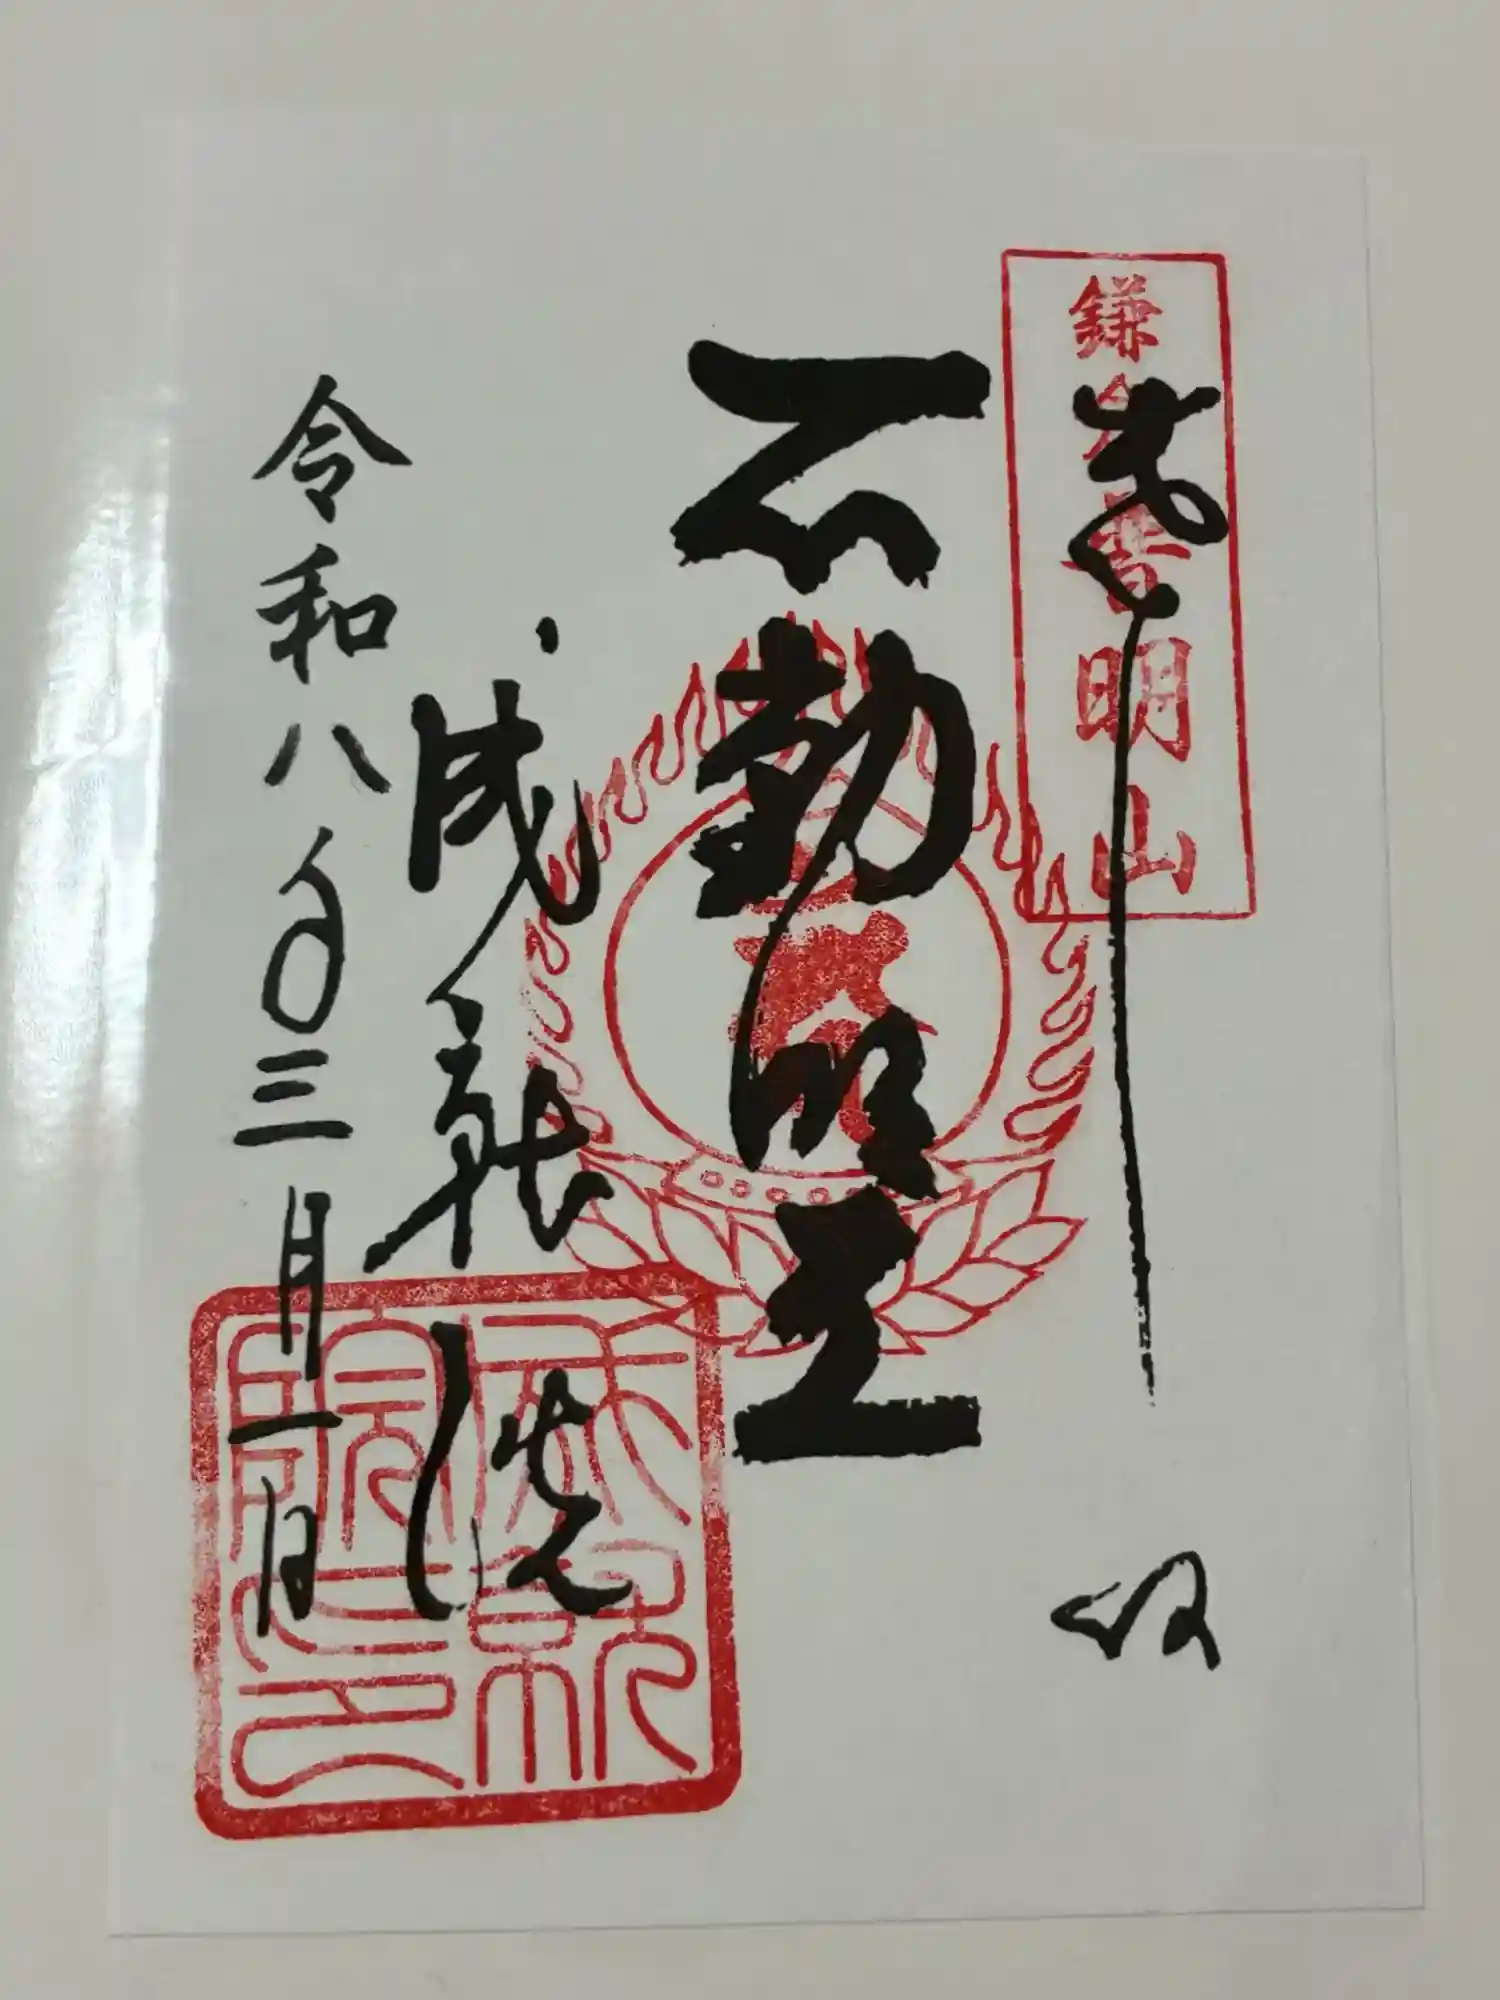 鎌倉普明山
奉拝
不動明王
成就院
令和八年三月一日
成就院之印